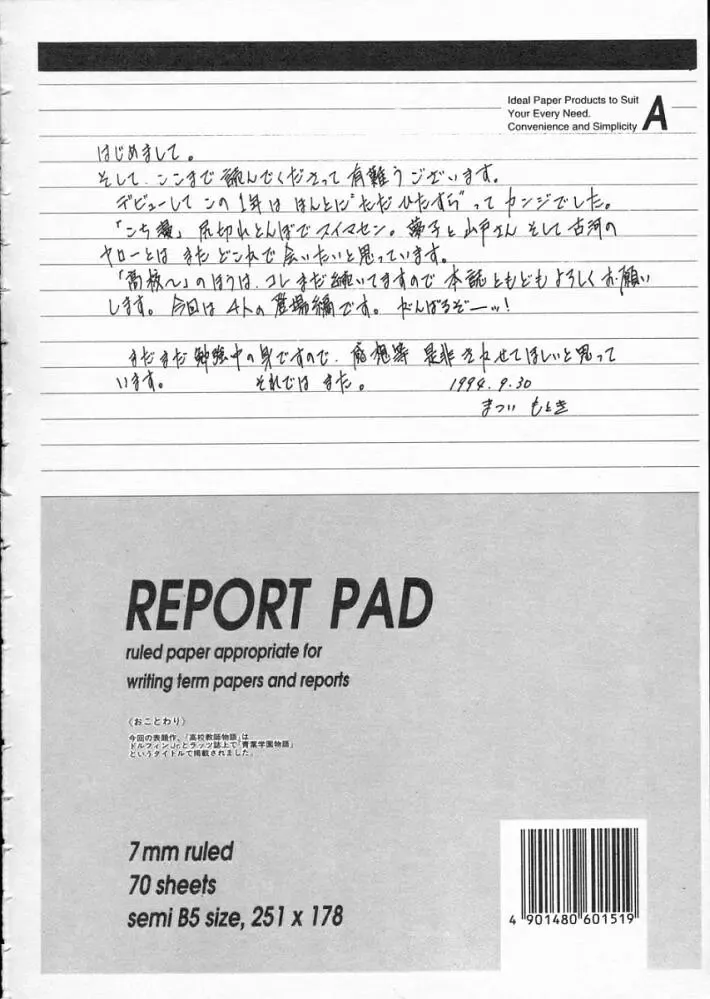 Ideal Paper Products to Suit
Your Every Need.
Convenience and Simplicity
A
はじめまして。
そして、ここまで読んでくださって有難うございます。
デビューしてこの1年はほんとに"ただひたすら"ってカンジでした。
尻切れとんぼでスイマセン。子と山戸さんそして古河の
ヤローとはまたどこかで会いたいと思っています。
「高校〜」のほうは、コレまだ続いてますので本誌ともどもよろしくお願い
します。今回は4人の登場編です。がんばるぞーッ!
まだまだ勉強中の身ですので、感想等是非きかせてほしいと思って
います。 それではまた。 1994.9.30
まつい もとき
REPORT PAD
ruled paper appropriate for
writing term papers and reports
《おことわり》
今回の表題作、「高校教師物語」は
ドルフィンJr.とラッツ誌上で「青葉学園物語」
というタイトルで掲載されました。
7mm ruled
70 sheets
semi B5 size, 251 x 178
4 901480 601519